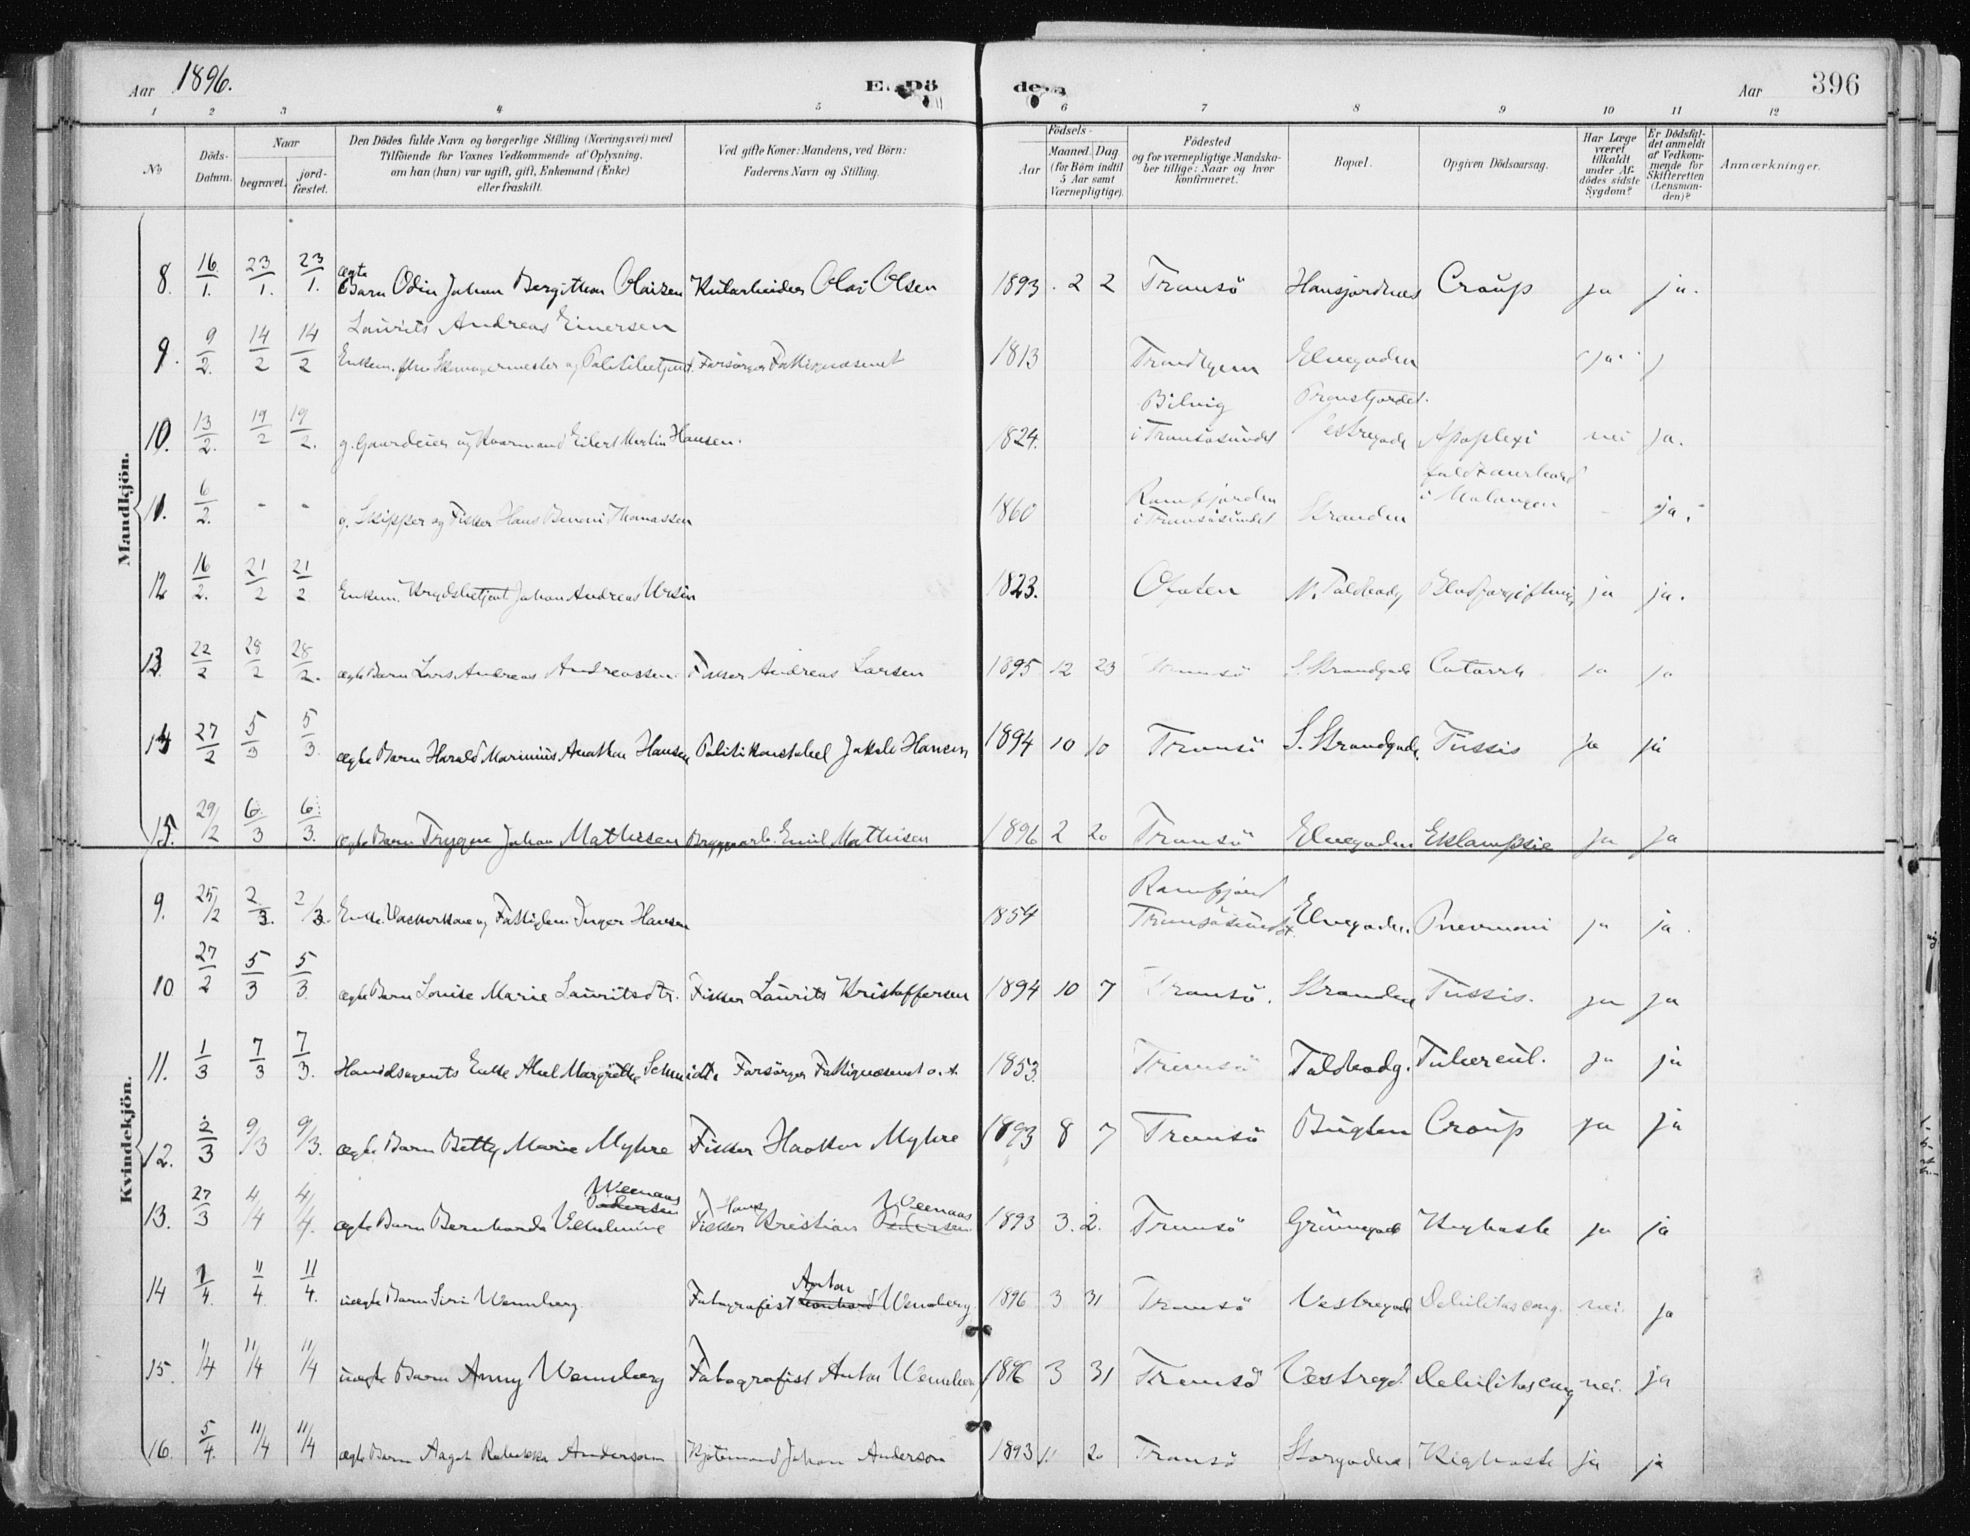 Aar 1896.
E. Dö
de..
Aar
396
1 2 3 4 5 6 7 8 9 10 11 12
No
Döds-Datum.
Naar
begravet.
jord-fæstet.
Den Dödes fulde Navn og borgerlige Stilling (Næringsvei) med
Tilföiende for Voxnes Vedkommende af Oplysning,
om han (hun) var ugift, gift, Enkemand (Enke)
eller fraskilt.
Ved gifte Koner: Mandens, ved Börn:
Faderens Navn og Stilling.
Födsels-
Aar
Maaned. Dag
(for Börn indtil
5 Aar samt
Værnepligtige).
Födested
og for værnepligtige Mandska-
ber tillige: Naar og hvor
konfirmeret.
Bopæl.
Opgiven Dödsaarsag.
Har Læge
været
tilkaldt
under Af-
dödes sidste
Sygdom?
Er Dödsfal-
det anmeldt
af Vedkom-
mende for
Skifteretten
(Lensman-
den)?
Anmærkninger.
Mandkjön.
8. 16/1. 23/1. 23/1. ægte Barn Odin Johan Bergithon Olaisen Kularbeider Olai Olsen 1893 2 2 Tromsö Hansjordnæs Croup ja ja.
9. 9/2. 14/2 14/2 Laurits Andreas Einersen
Enkem. Skomagermester og Politibetjent. Forsörges Fattigvæsenet 1813 Trondhjem Elvegaden ja j
10. 13/2. 19/2 19/2. g. Gaardeier og Eilert Martin Hansen. 1824. i Tromsösundet Vestregade Apoplexi nei ja.
11. 6/2. - - g. Skipper og Fisker Hans Benoni Thomassen 1860 Ramfjorden
i Tromsösundet Stranden faldt overbord
i Malangen - ja.
12 16/2. 21/2 21/2 Enkem. Krydsbetjent Johan Andreas Ursin 1823. Ofoten N. Toldbodg Blodforgiftning ja ja.
13. 22/2 28/2 28/2. ægte Barn Lars Andreas Andreassen. Fisker Andreas Larsen 1895 12 23 Tromsö S. Strandgade Catarrh ja ja
14 27/2 5/3 5/3. ægte Barn Harald Marinius Anathon Hansen Politikonstabel Jakob Hansen 1894 10 10 Tromsö S. Strandgade Tussis ja ja
15. 29/2 6/3 6/3. ægte Barn Trygve Johan Mathisen Bryggearb. Emil Mathisen 1896 2 20 Tromsö Elvegaden Eklampsie ja ja
Kvindekjön.
9. 25/2 2/3. 2/3. Enke. Vaskerkone og Fattiglem Inger Hansen 1854 Ramfjord
Tromsösundet. Elvegaden. Pnevmoni ja ja.
10 27/2 5/3 5/3. ægte Barn Louise Marie Lauritsdtr. Fisker Laurits Kristoffersen 1894 10 7 Tromsö. Stranden Tussis. ja ja
11. 1/3 7/3 7/3. Handelsagents Enke Abel Margrethe Schmidt. Forsörges Fattigvæsenet o. t. 1853. Tromsö Toldbodg. Tubercul. ja ja
12. 2/3 9/3 9/3. ægte Barn Betty Marie Myhre Fisker Haakon Myhre 1893 8 7 Tromsö Bugten Croup ja ja
13. 27/3 4/4 4/4. ægte Barn Bernharda Vilhelmine Pedersen Weenaas Fisker Hans Kristian Pedersen Weenaas 1893 3. 2. Tromsö Grönnegade Kighoste ja ja
14 1/4. 11/4 11/4. uægte Barn Siri Wennberg Fotografist Anton Wennberg. 1896 3 31 Tromsö Vestregade Debilitas cong. nei. ja
15. 11/4 11/4 11/4 uægte Barn Anny Wennberg Fotografist Anton Wennberg 1896 3 31 Tromsö Vestregd. Debilitas cong nei. ja
16. 5/4. 11/4 11/4 ægte Barn Aagot Rebekka Anderson Kjötmand Johan Anderson 1893 11 20 Tromsö Storgaden Kighoste ja ja